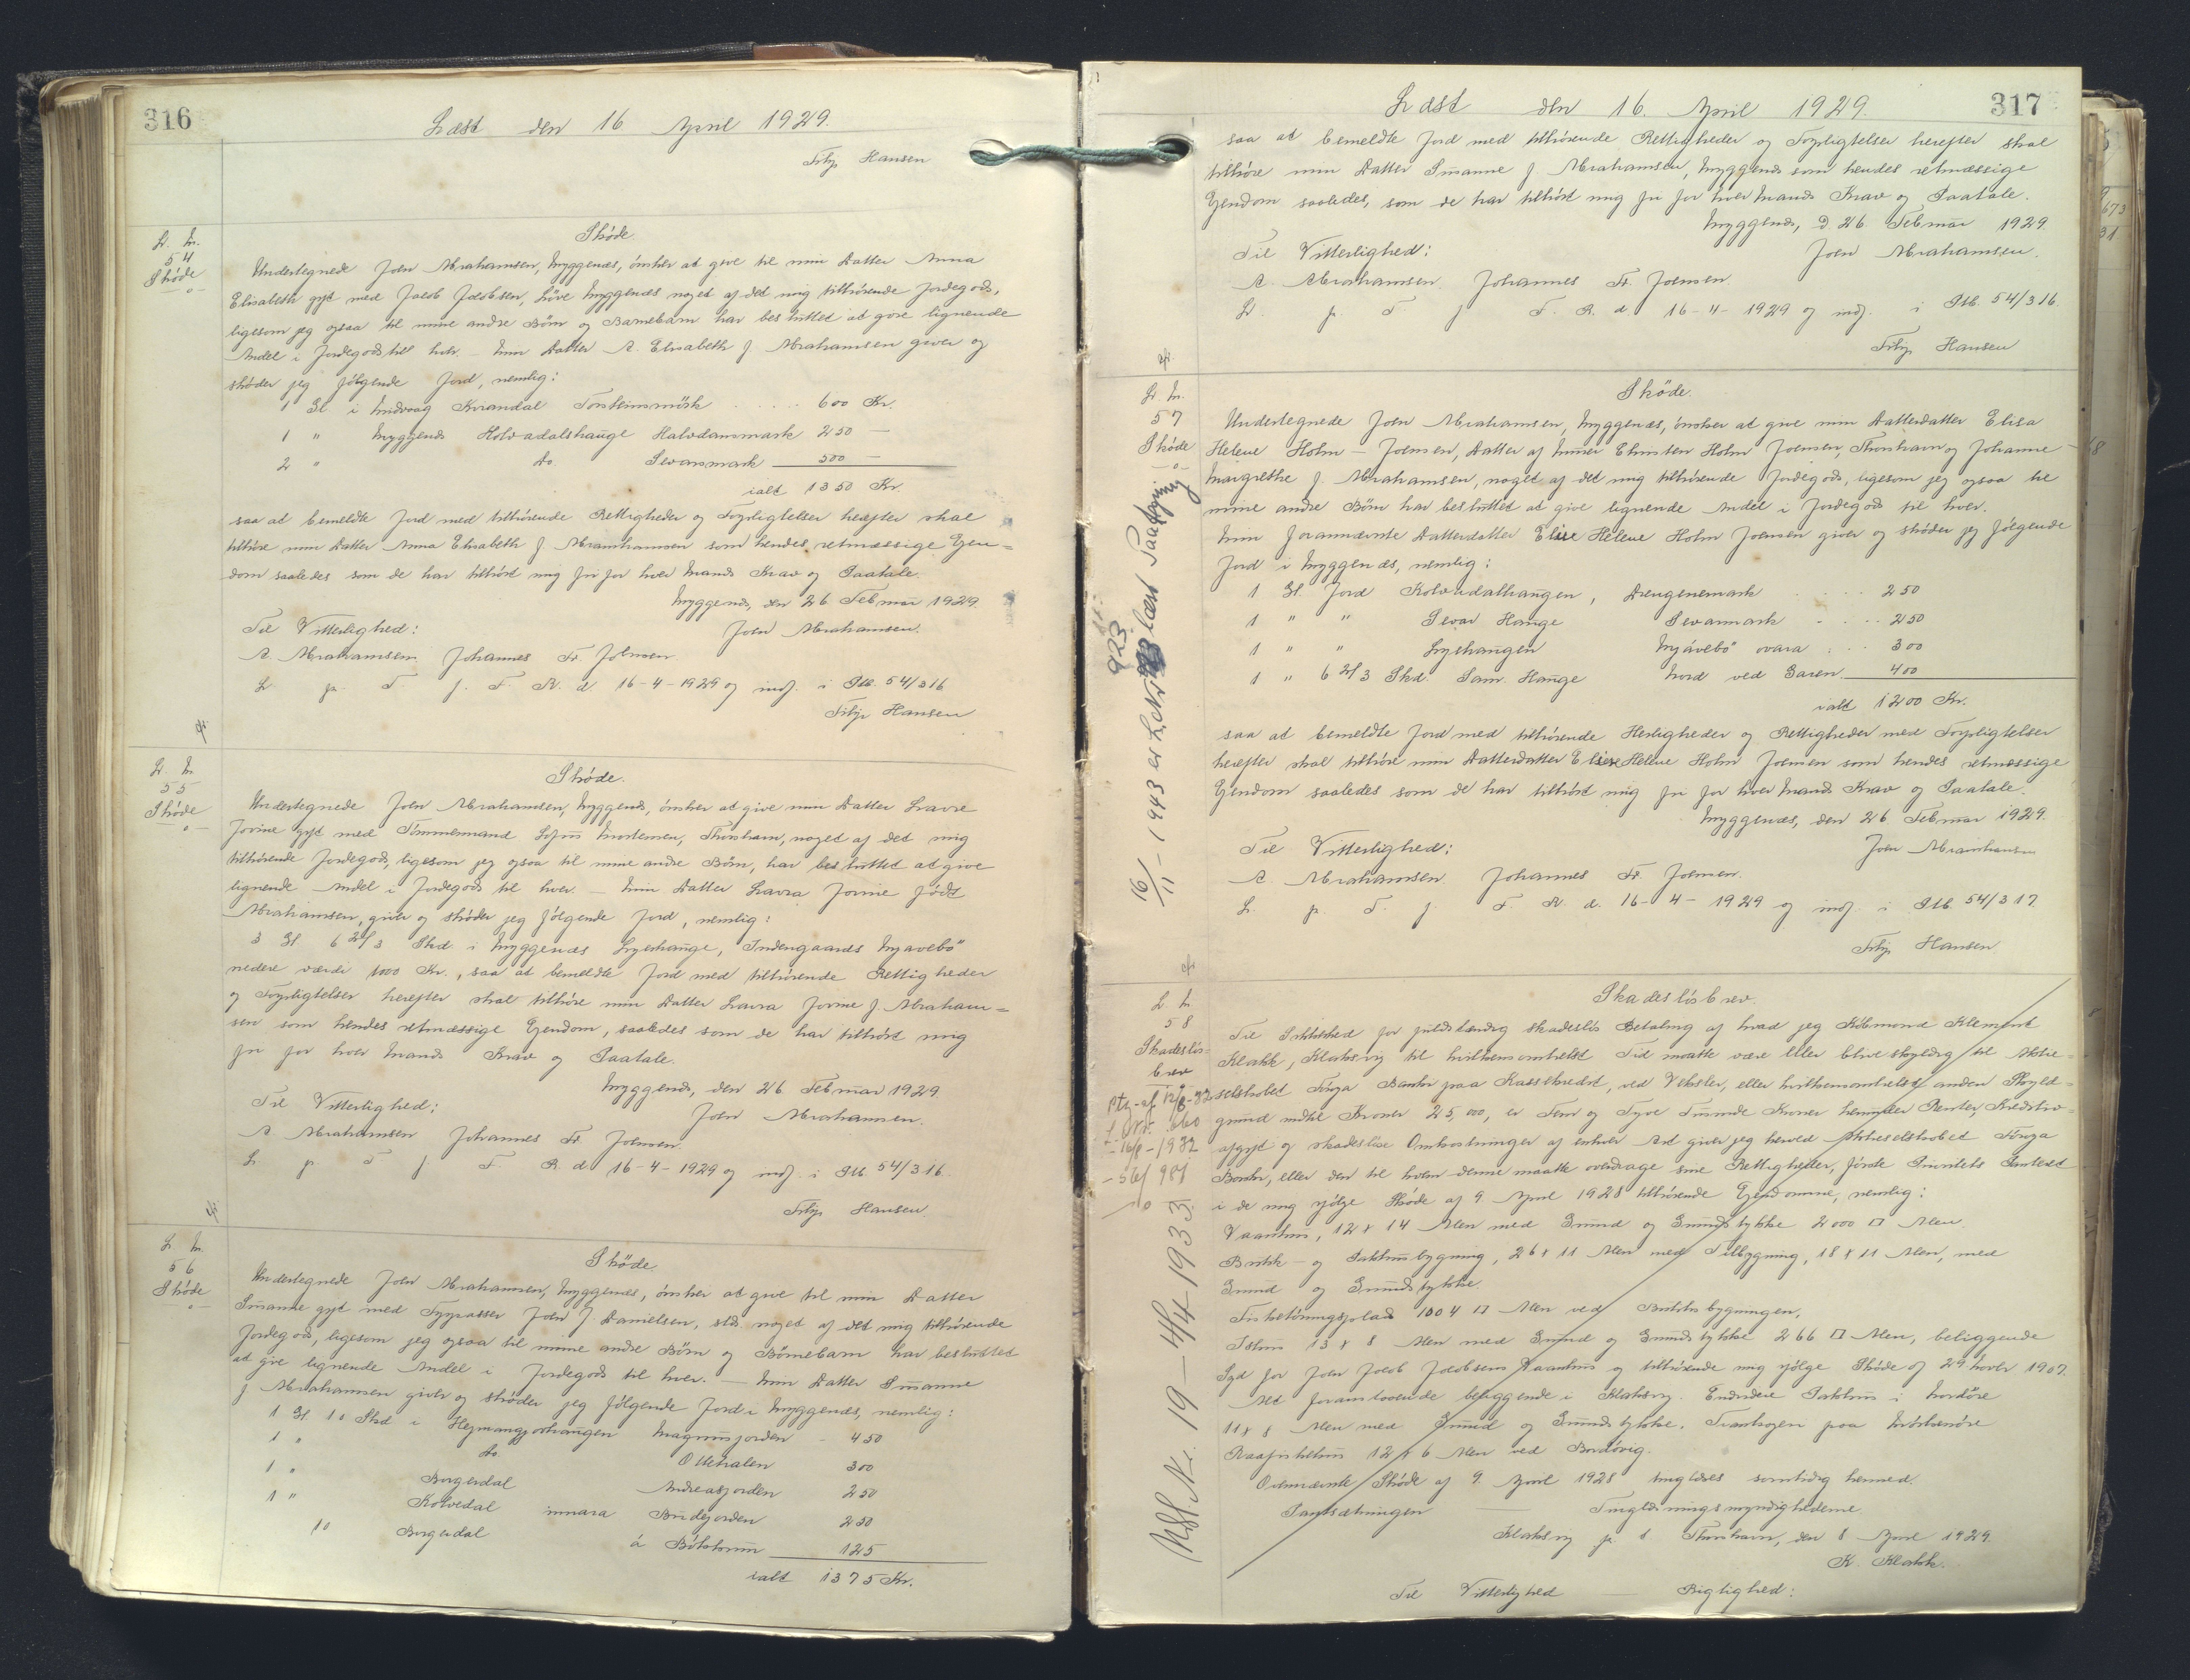 316
Læst den 16 April 1929.
Filip Hansen
L. Nr.
54
Skøde
Skøde
Undertegnede Joen Abrahamsen, Myggenæs, ønsker at give til min Datter Anna
Elisabeth gift med Jacob Jacobsen, Myggenæs noget af det mig tilhørende Jordegods,
ligesom jeg ogsaa til mine andre Børn og Barnebarn har besluttet at gøre lignende
Andel i Jordegods til hver. – Min Datter A. Elisabeth f. Abrahamsen giver og
skøder jeg følgende Jord, nemlig:
1 Gl. i Midvaag Kvandal Torsteinsmørk 600 Kr.
1 " Myggenæs Holvadalshauge Halvdansmark 250 —
2 " do Sevarsmark 500 —
ialt 1350 Kr.
saa at bemeldte Jord med tilhørende Rettigheder og Forpligtelser herefter skal
tilhøre min Datter Anna Elisabeth f. Abramhamsen som hendes retmæssige Ejen=
dom saaledes som de har tilhørt mig fri for hver Mands Krav og Paatale.
Myggenæs, den 26 Februar 1929.
Til Vitterlighed: Joen Abrahamsen.
A. Abrahamsen Johannes Fr. Joensen.
L. p. T. f. F. R. d 16-4-1929 og indf. i Ptb. 54/316
Filip Hansen
L. Nr.
55
Skøde
Skøde.
Undertegnede Joen Abrahamsen, Myggenæs, ønsker at give min Datter Lavra
Jovine gift med Tømmermand Sofus Mortensen, Thorshavn, noget af det mig
tilhørende Jordegods, ligesom jeg ogsaa til mine andre Børn, har besluttet at give
lignende Andel i Jordegods til hver. – Min Datter Lavra Jovine født
Abrahamsen, giver og skøder jeg følgende Jord, nemlig:
3 Gl. 6 2/3 Skd i Myggenæs Lyershauge, Indengaards Myavebø"
nedere værdi 1000 Kr., saa at bemeldte Jord med tilhørende Rettigheder
og Forpligtelser herefter skal tilhøre min Datter Lavra Jovine f. Abraham=
sen som hendes retmæssige Ejendom, saaledes som de har tilhørt mig
fri for hver Mands Krav og Paatale.
Myggenæs, den 26 Februar 1929.
Til Vitterlighed: Joen Abrahamsen.
A Abrahamsen Johannes Fr. Joensen.
L p T f F. R. d 16-4-1929 og indf. i Ptb 54/316.
Filip Hansen.
L. Nr.
56
Skøde
Skøde
Undertegnede Joen Abrahamsen, Myggenæs, ønsker at give til min Datter
Susanne gift med Fyrpasser Joen J. Danielsen, stds. noget af det mig tilhørende
Jordegods, ligesom jeg ogsaa til mine andre Børn og Børnebarn har besluttet
at give lignende Andel i Jordegods til hver. – Min Datter Susanne
f Abrahamsen giver og skøder jeg følgende Jord i Myggenæs, nemlig:
1 Gl. 10 Skd i Hejmangjorhaugen Magnusjorden 450
1 " do. Ottehalen 300
1 " Borgerdal Andreasjorden 250
1 " Kolvedal innara Bridejorden 250
10 Borgerdal á Bólstrum 125
ialt 1375 Kr.
317
Læst den 16. April 1929.
saa at bemeldte Jord med tilhørende Rettigheder og Forpligtelser herefter skal
tilhøre min Datter Susanne f. Abrahamsen, Myggenæs som hendes retmæssige
Ejendom saaledes, som de har tilhørt mig fri for hver Mands Krav og Paatale.
Myggenæs, d 26 Februar 1929.
Til Vitterlighed: Joen Abrahamsen.
A. Abrahamsen. Johannes Fr. Joensen.
L. p. T f T. R. d 16-4-1929 og indf. i Ptb. 54/316.
Filip Hansen
L. Nr.
57
Skøde
Skøde.
Undertegnede Joen Abrahamsen, Myggenæs, ønsker at give min Datterdatter Elisa
Helene Holm – Joensen, Datter af Murer Christen Holm Joensen, Thorshavn og Johanne
Margrethe f. Abrahamsen, noget af det mig tilhørende Jordegods, ligesom jeg ogsaa til
mine andre Børn har besluttet at give lignende Andel i Jordegods til hver.
Min forannævnte Datterdatter Elise Helene Holm Joensen giver og skøder jeg følgende
Jord i Myggenæs, nemlig:
1 Gl. Jord Kolvadalhaugen, Drengenemark 250
1 " " Sevar Hauge Sevarmark 250
1 " " Lyshaugen Myávebø ovara 300
1 " 6 2/3 Skd. Sam. Hauge Nord ved Garen 400
ialt 1200 Kr.
saa at bemeldte Jord med tilhørende Herligheder og Rettigheder med Forpligtelser
herefter skal tilhøre min Datterdatter Elise Helene Holm Joensen som hendes retmæssige
Ejendom saaledes som de har tilhørt mig fri for hver Mands Krav og Paatale.
Myggenæs, den 26 Februar 1929.
Til Vitterlighed: Joen Abramhamsen
A. Abrahamsen. Johannes Fr. Joensen.
L. p. T. f. F. R. d. 16-4-1929 og indf. i Ptb. 54/317.
Filip Hansen.
16/11-1943 er L. Nr. 923 læst Paategning
L. Nr.
58
Skadesløs=
brev
Skadesløsbrev.
Til Sikkerhed for fuldstændig skadesløs Betaling af hvad jeg Købmand Klement
Klakk, Klaksvig til hvilkensomhelst Tid maatte være eller blive skyldig til Aktie=
selskabet Føroya Banki paa Kassekredit, ved Veksler, eller hvilkensomhelst anden Skyld=
grund indtil Kroner 25,000, er Fem og Tyve Tusinde Kroner herunder Renter, Kreditiv=
afgift og skadesløse Omkostninger af enhver Art giver jeg herved Aktieselskabet Føroya
Banki, eller den til hvem denne maatte overdrage sine Rettigheder, første Prioritets Panteret
i de mig ifølge Skøde af 9 April 1928 tilhørende Ejendomme, nemlig:
Vaanhus, 12 x 14 Alen med Grund og Grundstykke 2000 □ Alen.
Butik – og Pakhusbygning, 26 x 11 Alen med Tilbygning, 18 x 11 Alen, med
Grund og Grundstykke.
Fisketørringsplads 1004 □ Alen ved Butiksbygningen.
Ishus 13 x 8 Alen med Grund og Grundstykke 266 □ Alen, beliggende
Syd for Joen Jacob Jacobsens Vaanhus og tilhørende mig ifølge Skøde af 29 Novbr 1907.
Alt foranstaaende beliggende i Klaksvig. Endvidere Pakhus i Nordøre
11 x 8 Alen med Grund og Grundstykke. paa
Raafiskehus 12 x 6 Alen ved Bordøvig.
Ovennævnte Skøde af 9. April 1928 tinglæses samtidig hermed.
Pantsætningen — Tinglæsningsmyndighederne
Klaksvig p. t Thorshavn, den 8 April 1929.
K. Klakk.
Til Vitterlighed — Rigtighed:
Ptg. af 12/8-32
-16/8-1932
-56/981
Udsl. Nr. 19 – 4/4-1933